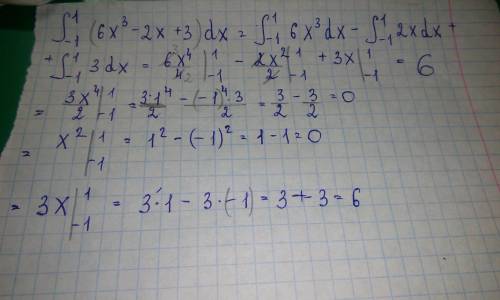 ∫₋₁¹ (6x³ - 2x + 3) dx = ∫₋₁¹ 6x³ dx - ∫₋₁¹ 2x dx +
+ ∫₋₁¹ 3 dx = 6x⁴/4 |₋₁¹ - 2x²/2 |₋₁¹ + 3x |₋₁¹ = 6
= 3x⁴/2 |₋₁¹ = 3·1⁴/2 - (-1)⁴·3/2 = 3/2 - 3/2 = 0
= x² |₋₁¹ = 1² - (-1)² = 1 - 1 = 0
= 3x |₋₁¹ = 3·1 - 3·(-1) = 3 + 3 = 6